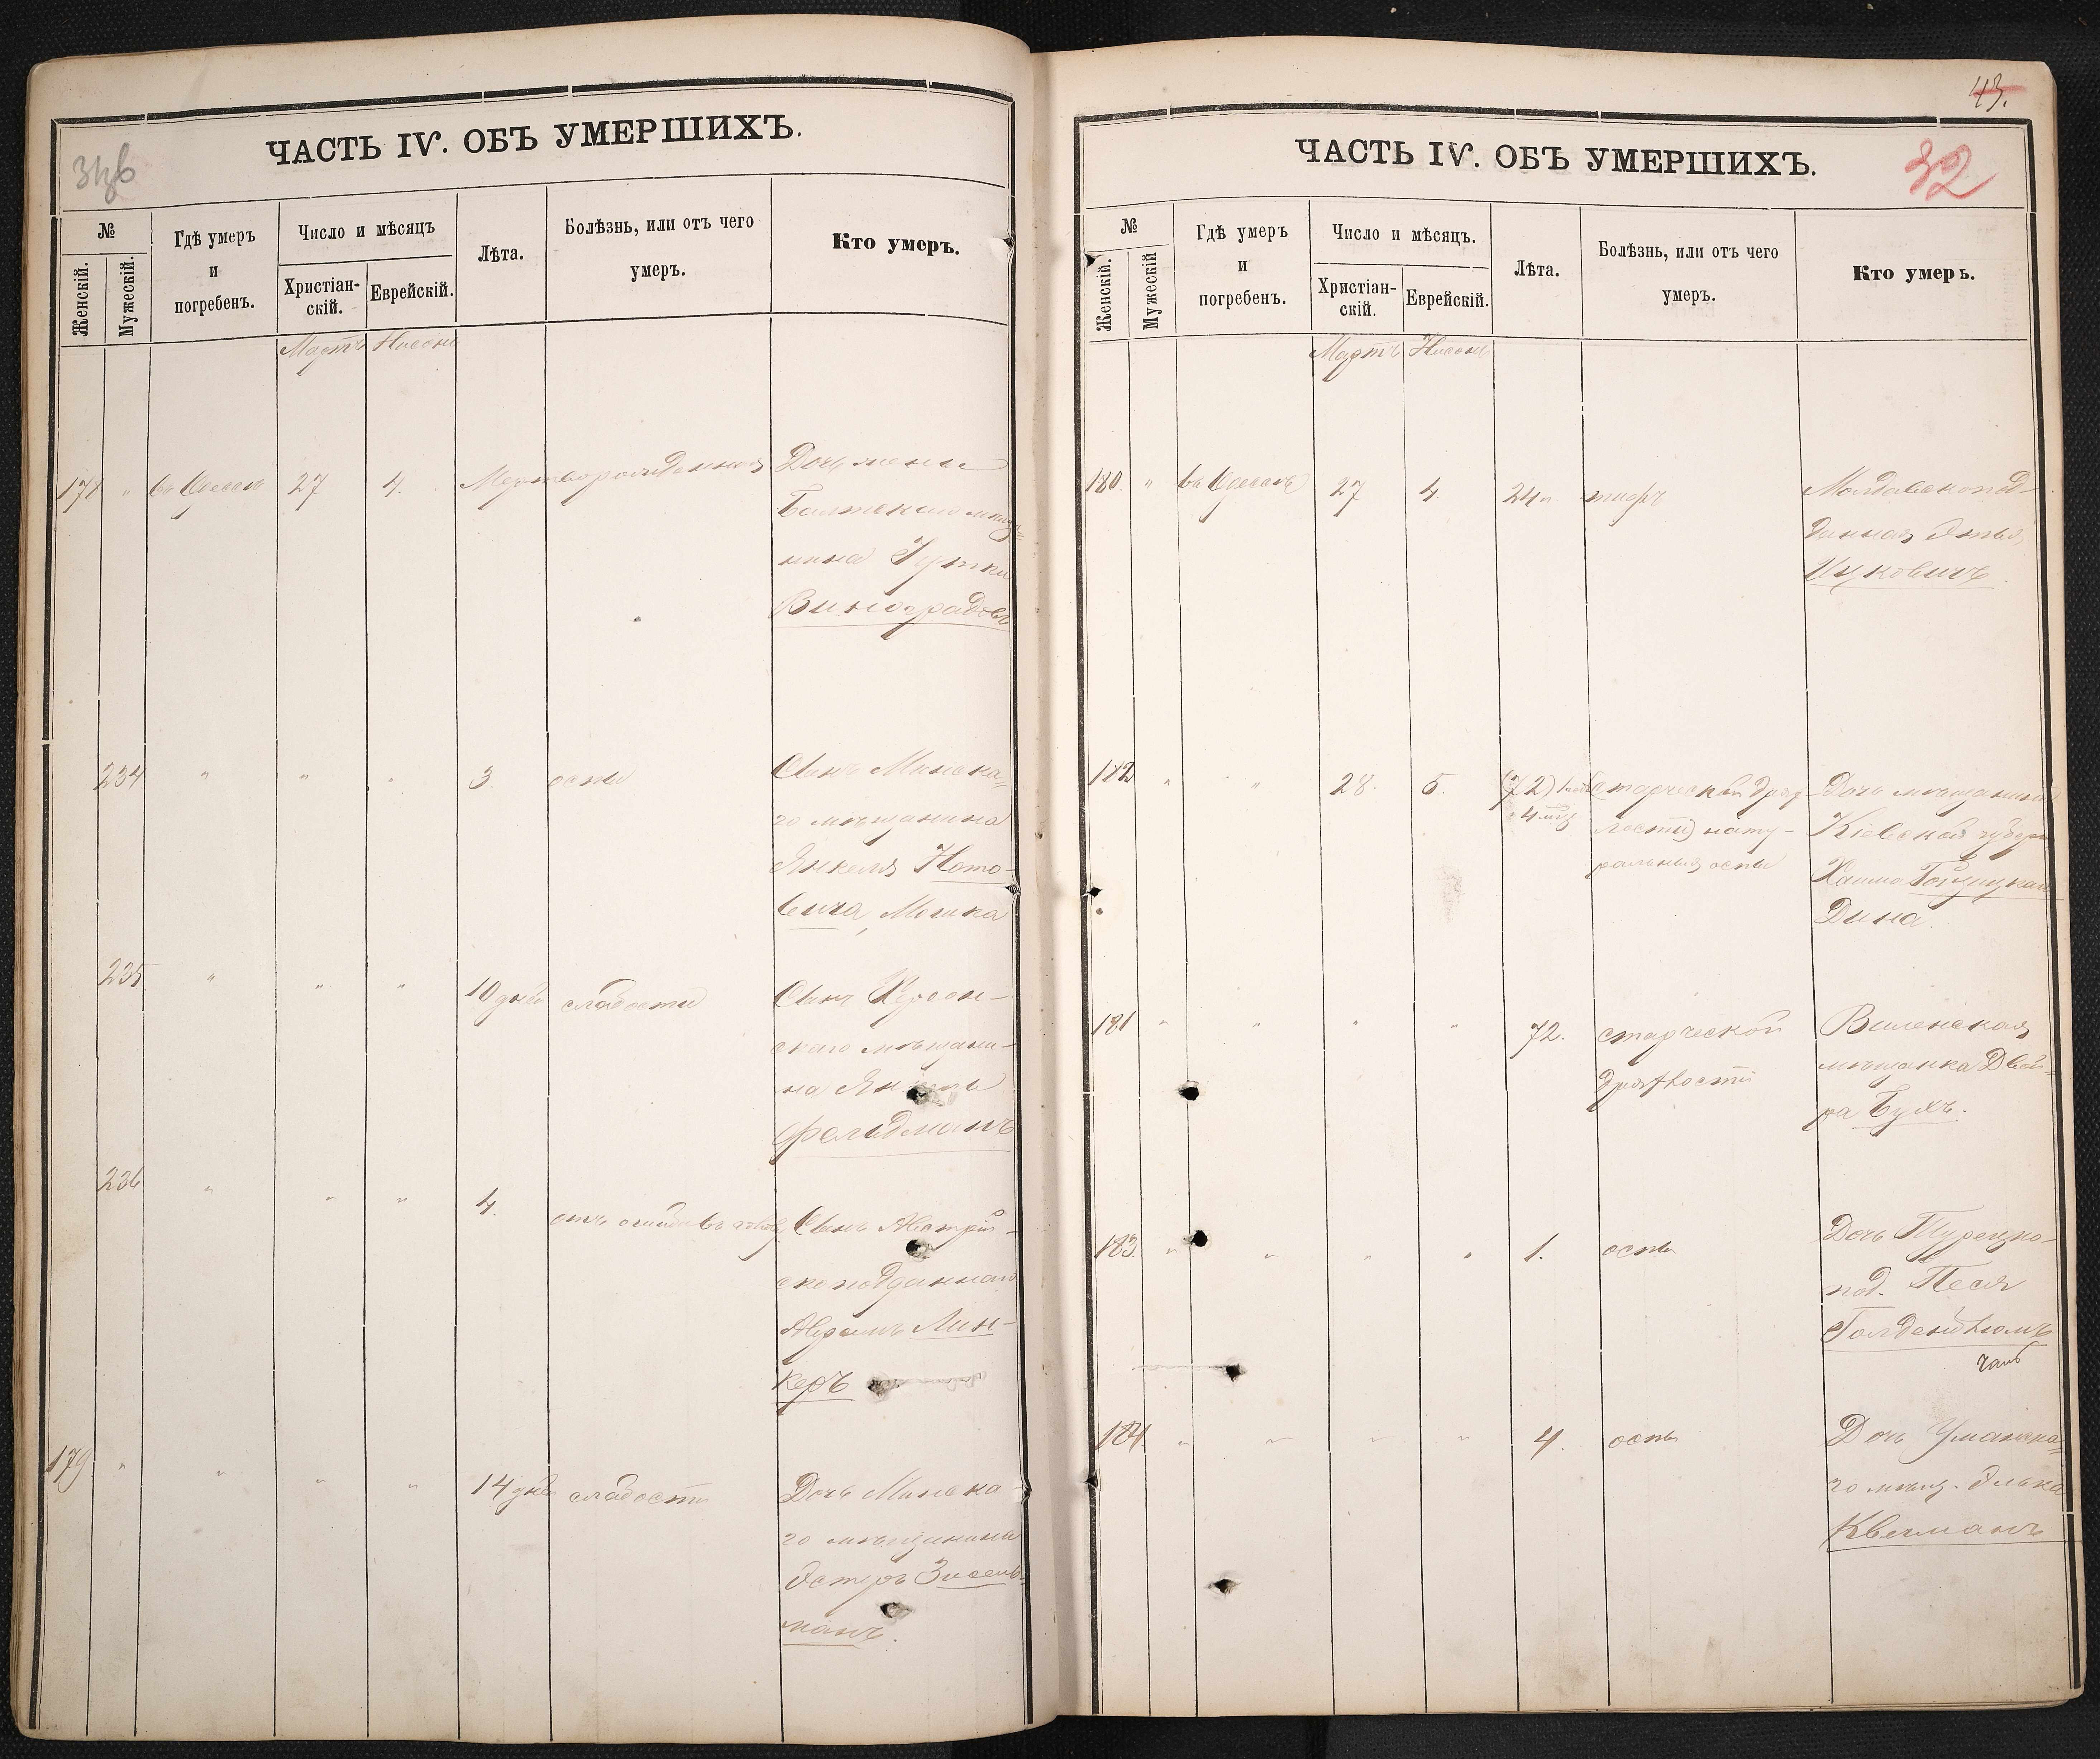 ЧАСТЬ IV. ОБЪ УМЕРШИХЪ.
№
Женскій.
Мужескій.
Гдѣ умеръ
и
погребенъ.
Число и мѣсяцъ
Христіан-
скій.
Еврейскій.
Лѣта.
Болѣзнь, или отъ чего
умеръ.
Кто умеръ.
Мартъ Нисонъ
178 " въ Одессѣ 27 4. Мертворожденная Дочь жены
Балтскаго мѣща-
нина Гутка
Виноградовъ
234 " " " 3. оспы Сынъ Минска-
го мѣщанина
Янкеля Ното-
вича, Мошка
235 " " " 10 дней слабости Сынъ Херсон-
скаго мѣщани-
на
Фельдманъ
236 " " " 4. Сынъ Австрій-
скоподданнаго
Абрамъ Лин-
керъ
179 " " " " 14 дней слабости Дочь Минска-
го мѣщанина
Эстеръ Зисель-
манъ.
43.
ЧАСТЬ IV. ОБЪ УМЕРШИХЪ.
32
№
Женскій.
Мужескій
Гдѣ умеръ
и
погребенъ.
Число и мѣсяцъ.
Христіан-
скій.
Еврейскій.
Лѣта.
Болѣзнь, или отъ чего
умеръ.
Кто умеръ.
Мартъ Нисонъ
180. " въ Одессѣ 27 4 24 тифъ Молдавскопод-
данная Этля
Ицковичъ
182 " " 28. 5. (72) (старческой дрях-
лости) нату-
ральныя оспы
Дочь мѣщанина
Кіевской губерн
Дина.
181 " " " " 72. старческой
дряхлости
Виленская
мѣщанка Двой-
ра Бухъ.
183 " " " " 1. оспы Дочь Турецко-
под. Песя
Голденблюмъ
184. " " " " 4. оспы Дочь Уманска-
го мѣщ. Элька
Квечманъ